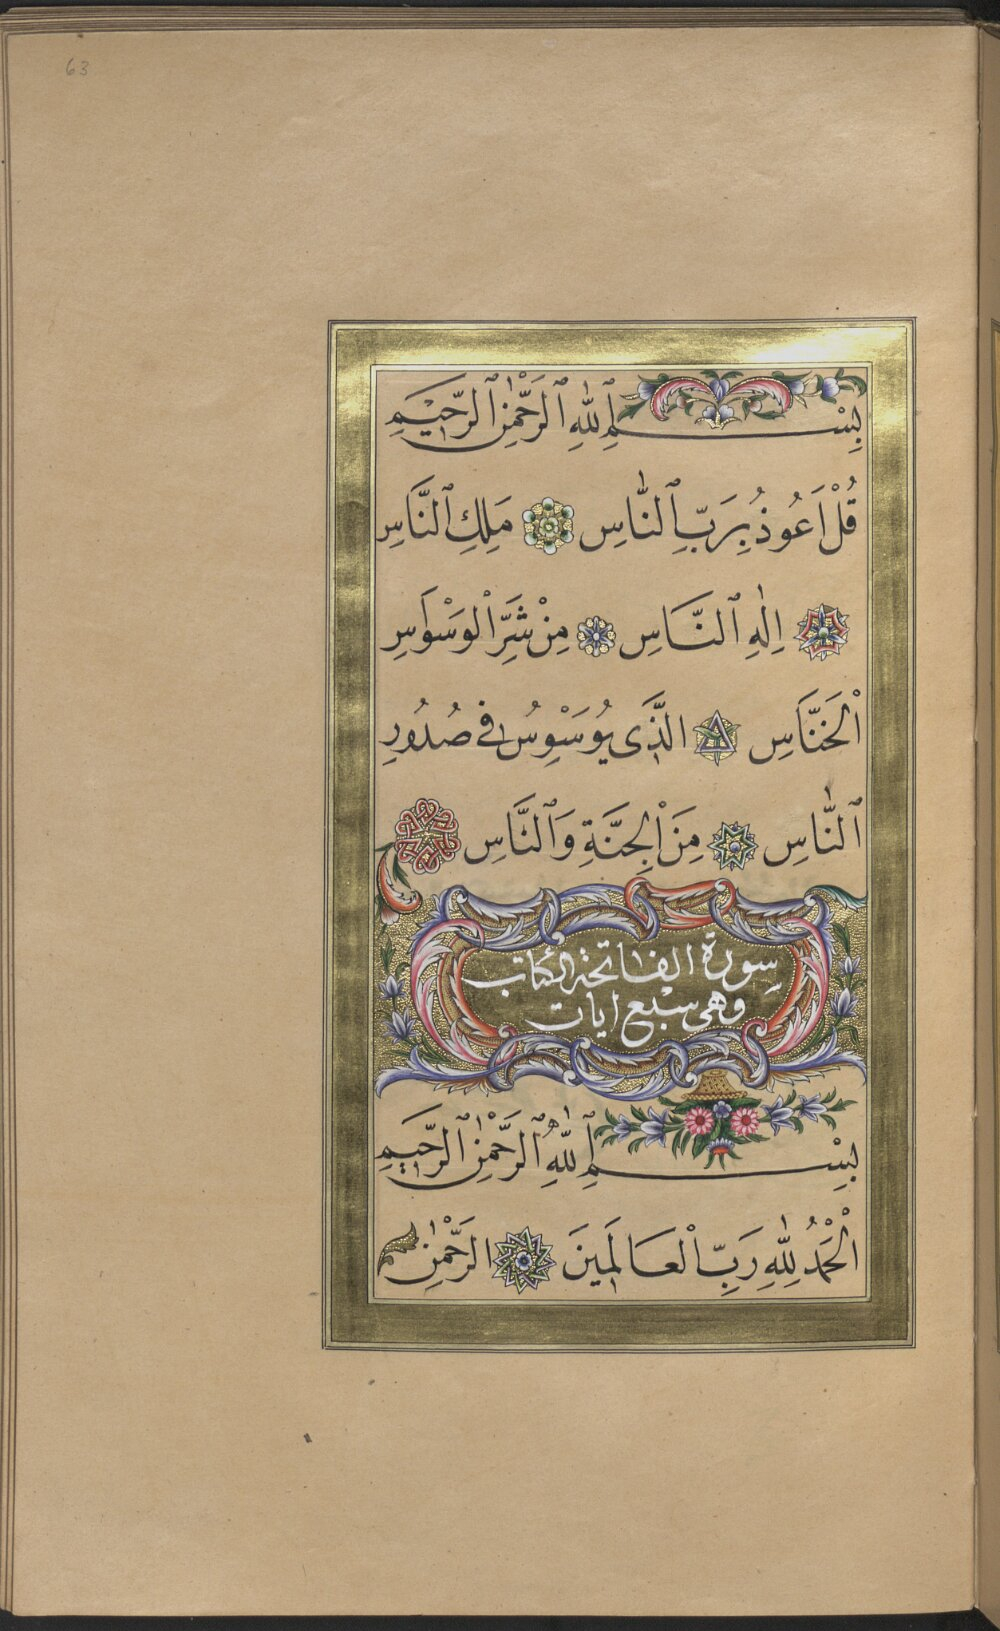 63
بِسْمِ ٱللّٰهِ ٱلرَّحْمٰنِ ٱلرَّحِيْمِ
قُلْ اَعُوذُ بِرَبِّ ٱلنَّاسِ مَلِكِ ٱلنَّاسِ
اِلٰهِ ٱلنَّاسِ مِنْ شَرِّ الْوَسْوَاسِ
اْلخَنَّاسِ الَّذَى يُوَسْوِسُ فِى صُدُورِ
ٱلنَّاسِ مِنَ اْلجِنَّةِ وَٱلنَّاسِ
سورة الفاتحة الكتاب
وهى سبع ايات
بِسْمِ ٱللّٰهِ ٱلرَّحْمٰنِ ٱلرَّحِيمِ
اْلحَمْدُ لِلّٰهِ رَبِّ اْلعَالَمِينَ الرَّحْمٰنِ